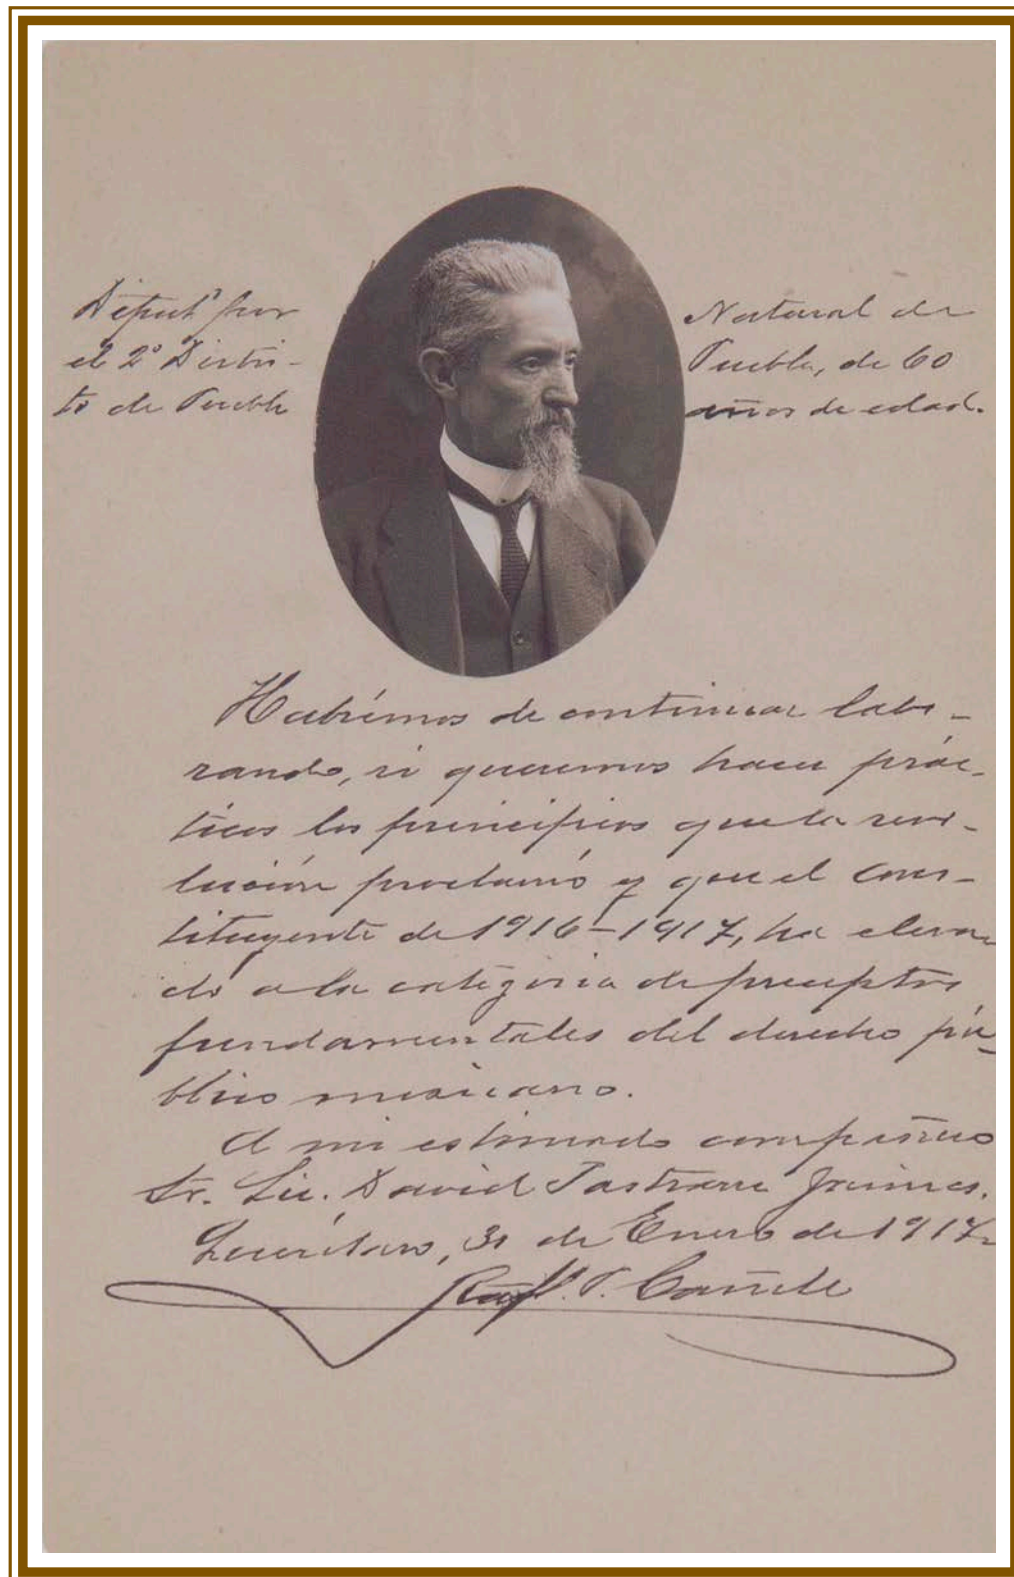 Diput? por
el 2º Distri-
to de Puebla
Natural de
Puebla, de 60
años de edad.
Habrémos de continuar labo-
rando, si queremos hacer prác-
ticos los principios que la revo-
lución proclamó y que el Cons-
tituyente de 1916-1917, ha eleva
do a la categoria de preceptos
fundamentales del derecho pú-
blico mexicano.
A mi estimado compañero
Sr. Lic. David Pastrana Jaimes.
Querétaro, 31 de Enero de 1917.
Raf. P. Cañete